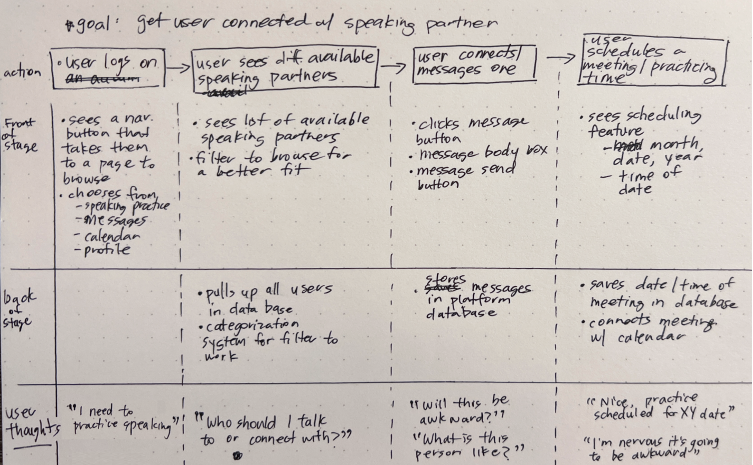 *goal: get user connected w/ speaking partner
action
• user logs on
user sees diff available
speaking partners
user connects/
messages one
user
schedules a
meeting/practicing
time
Front
of
stage
• sees a nav.
button that
takes them
to a page to
browse
• chooses from
- speaking practice
- messages
- calendar
- profile
• sees lot of available
speaking partners
• filter to browse for
a better fit
• clicks message
button
• message body box
• message send
button
• sees scheduling
feature
- month,
date, year
- time of
date
back
of
stage
• pulls up all users
in data base
• categorization
system for filter to
work
• stores messages
in platform
database
• saves date/time of
meeting in database
• connects meeting
w/ calendar
user
thoughts
"I need to
practice speaking"
"Who should I talk
to or connect with?"
"Will this be
awkward?"
"What is this
person like?"
"Nice, practice
scheduled for XY date"
"I'm nervous it's going
to be awkward"